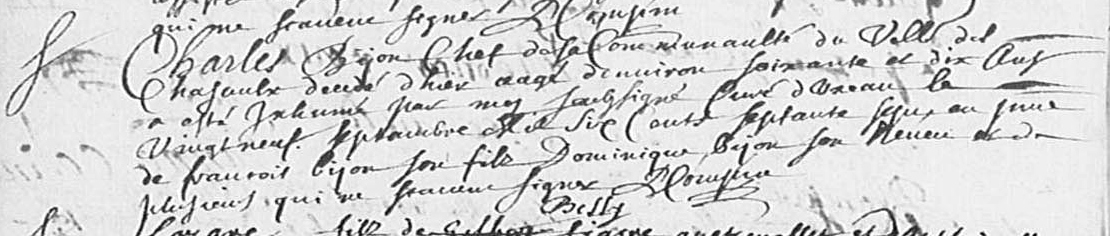 qui ne scavent signer
Charles Bijon Chef de la Communaulté du Velle des
Chasault decedé d'hier aagé d'environ soixante et dix Ans
a esté Inhumé par moy soubsigné Curé d'Uxeau le
Vingt neuf septembre Mil Six Cents septante sept en p̄nce
de francois bijon son fils Dominique bijon son Neveu et de
plusieurs qui ne scavent signer
fils de